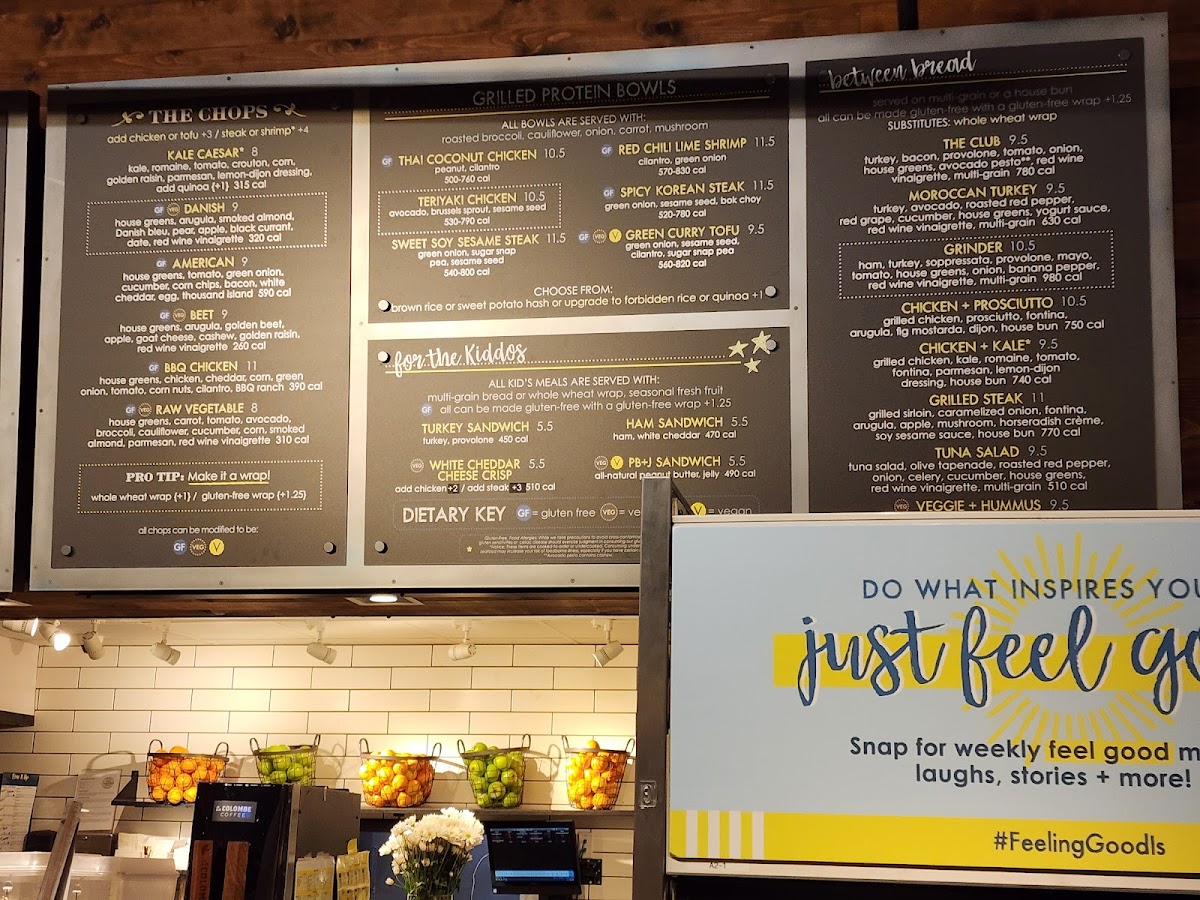 THE CHOPS
add chicken or tofu +3 / steak or shrimp* +4
KALE CAESAR* 8
kale, romaine, tomato, crouton, corn,
golden raisin, parmesan, lemon-dijon dressing,
add quinoa {+1} 315 cal
GF VEG DANISH 9
house greens, arugula, smoked almond,
Danish bleu, pear, apple, black currant,
date, red wine vinaigrette 320 cal
GF AMERICAN 9
house greens, tomato, green onion,
cucumber, corn chips, bacon, white
cheddar, egg, thousand island 590 cal
GF VEG BEET 9
house greens, arugula, golden beet,
apple, goat cheese, cashew, golden raisin,
red wine vinaigrette 260 cal
GF BBQ CHICKEN 11
house greens, chicken, cheddar, corn, green
onion, tomato, corn nuts, cilantro, BBQ ranch 390 cal
GF VEG RAW VEGETABLE 8
house greens, carrot, tomato, avocado,
broccoli, cauliflower, cucumber, corn, smoked
almond, parmesan, red wine vinaigrette 310 cal
PRO TIP: Make it a wrap!
whole wheat wrap {+1} / gluten-free wrap {+1.25}
all chops can be modified to be:
GF VEG V
GRILLED PROTEIN BOWLS
ALL BOWLS ARE SERVED WITH:
roasted broccoli, cauliflower, onion, carrot, mushroom
GF THAI COCONUT CHICKEN 10.5
peanut, cilantro
500-760 cal
TERIYAKI CHICKEN 10.5
avocado, brussels sprout, sesame seed
530-790 cal
SWEET SOY SESAME STEAK 11.5
green onion, sugar snap
pea, sesame seed
540-800 cal
GF RED CHILI LIME SHRIMP 11.5
cilantro, green onion
570-830 cal
GF SPICY KOREAN STEAK 11.5
green onion, sesame seed, bok choy
520-780 cal
GF VEG V GREEN CURRY TOFU 9.5
green onion, sesame seed,
cilantro, sugar snap pea
560-820 cal
CHOOSE FROM:
brown rice or sweet potato hash or upgrade to forbidden rice or quinoa +1
for the Kiddos
ALL KID'S MEALS ARE SERVED WITH:
multi-grain bread or whole wheat wrap, seasonal fresh fruit
GF all can be made gluten-free with a gluten-free wrap +1.25
TURKEY SANDWICH 5.5
turkey, provolone 450 cal
HAM SANDWICH 5.5
ham, white cheddar 470 cal
VEG WHITE CHEDDAR 5.5
CHEESE CRISP
add chicken +2 / add steak +3 510 cal
VEG V PB+J SANDWICH 5.5
all-natural peanut butter, jelly 490 cal
DIETARY KEY GF = gluten free VEG = ve V = vegan
between bread
served on multi-grain or a house bun
all can be made gluten-free with a gluten-free wrap +1.25
SUBSTITUTES: whole wheat wrap
THE CLUB 9.5
turkey, bacon, provolone, tomato, onion,
house greens, avocado pesto**, red wine
vinaigrette, multi-grain 780 cal
MOROCCAN TURKEY 9.5
turkey, avocado, roasted red pepper,
red grape, cucumber, house greens, yogurt sauce,
red wine vinaigrette, multi-grain 630 cal
GRINDER 10.5
ham, turkey, soppressata, provolone, mayo,
tomato, house greens, onion, banana pepper,
red wine vinaigrette, multi-grain 980 cal
CHICKEN + PROSCIUTTO 10.5
grilled chicken, prosciutto, fontina,
arugula, fig mostarda, dijon, house bun 750 cal
CHICKEN + KALE* 9.5
grilled chicken, kale, romaine, tomato,
fontina, parmesan, lemon-dijon
dressing, house bun 740 cal
GRILLED STEAK 11
grilled sirloin, caramelized onion, fontina,
arugula, apple, mushroom, horseradish crème,
soy sesame sauce, house bun 770 cal
TUNA SALAD 9.5
tuna salad, olive tapenade, roasted red pepper,
onion, celery, cucumber, house greens,
red wine vinaigrette, multi-grain 510 cal
VEG VEGGIE + HUMMUS 9.5
DO WHAT INSPIRES YOU
just feel go
Snap for weekly feel good m
laughs, stories + more!
#FeelingGoodIs
La COLOMBE
COFFEE